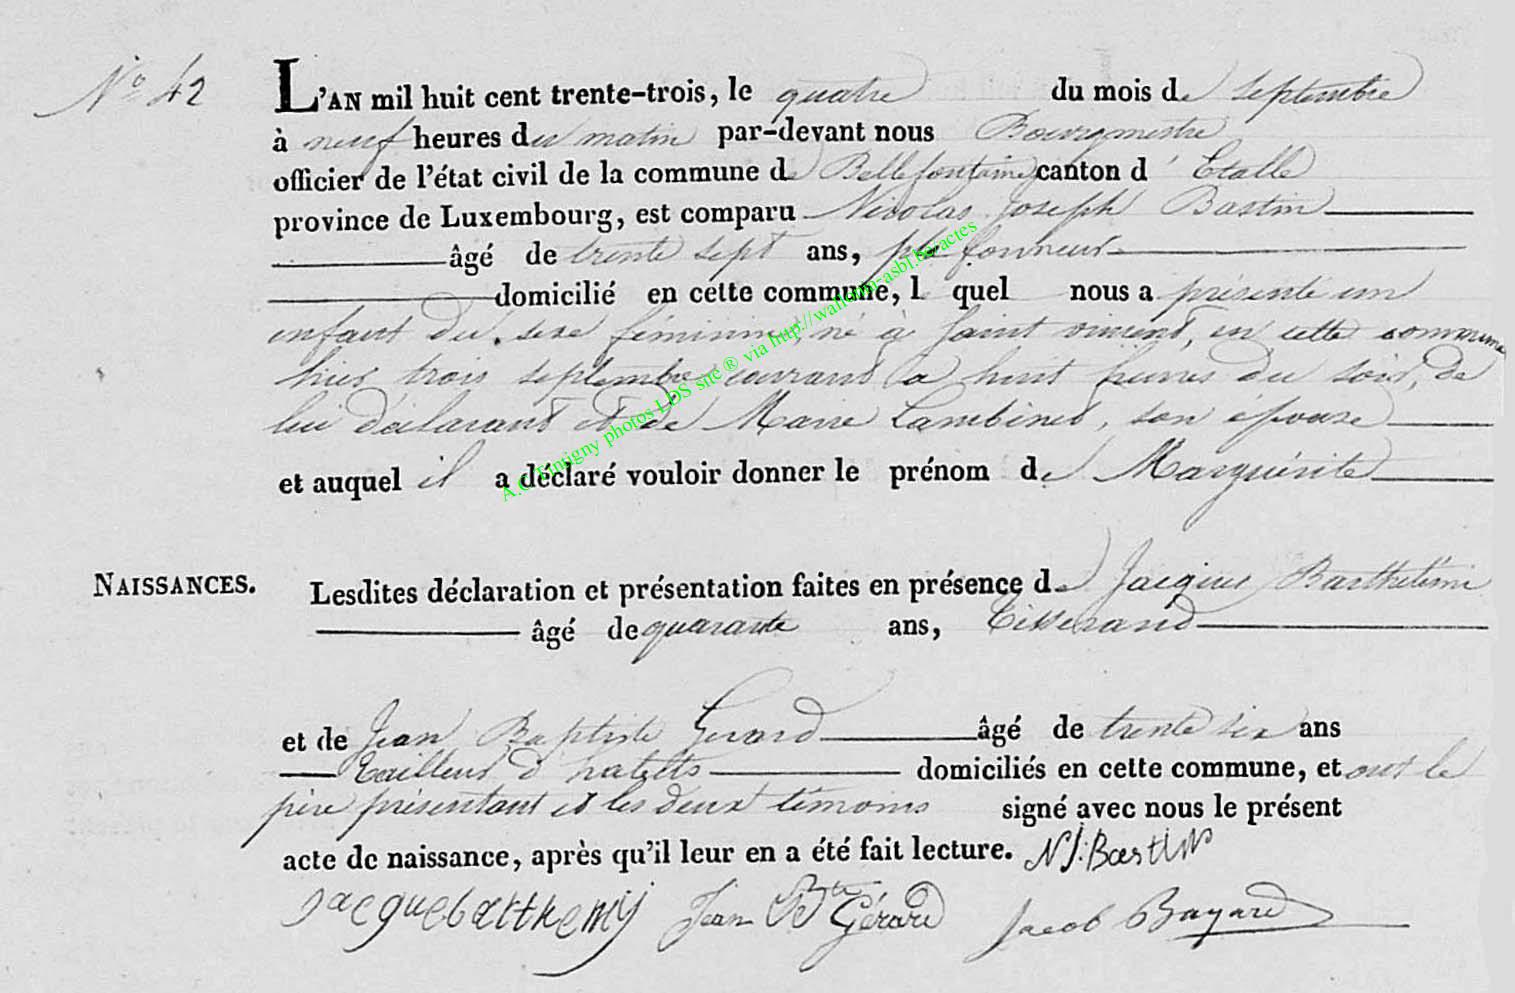 N° 42
L'AN mil huit cent trente-trois, le quatre du mois de septembre
à neuf heures du matin par-devant nous Bourgmestre
officier de l'état civil de la commune de Bellefontaine canton d'Etalle
province de Luxembourg, est comparu Nicolas Joseph Bastin
âgé de trente sept ans,
domicilié en cette commune, lequel nous a présenté un
enfant du sexe féminin, né à Saint vincent, en cette commune
hier trois septembre courant a huit heures du soir, de
lui déclarant et de Marie Lambinet, son épouse
et auquel il a déclaré vouloir donner le prénom de Marguérite
NAISSANCES.
Lesdites déclaration et présentation faites en présence de Jacques Barthélémi
âgé de quarante ans, Tisserand
et de Jean Baptiste Gerard âgé de trente six ans
tailleur d'habits domiciliés en cette commune, et ont le
père présentant et les deux témoins signé avec nous le présent
acte de naissance, après qu'il leur en a été fait lecture. N J: Bastin
Jacque barthemy Jean Bte Gérard Jacob Bayard
A.C. Tintigny photos LDS site ® via http://wallonia-asbl.be/actes